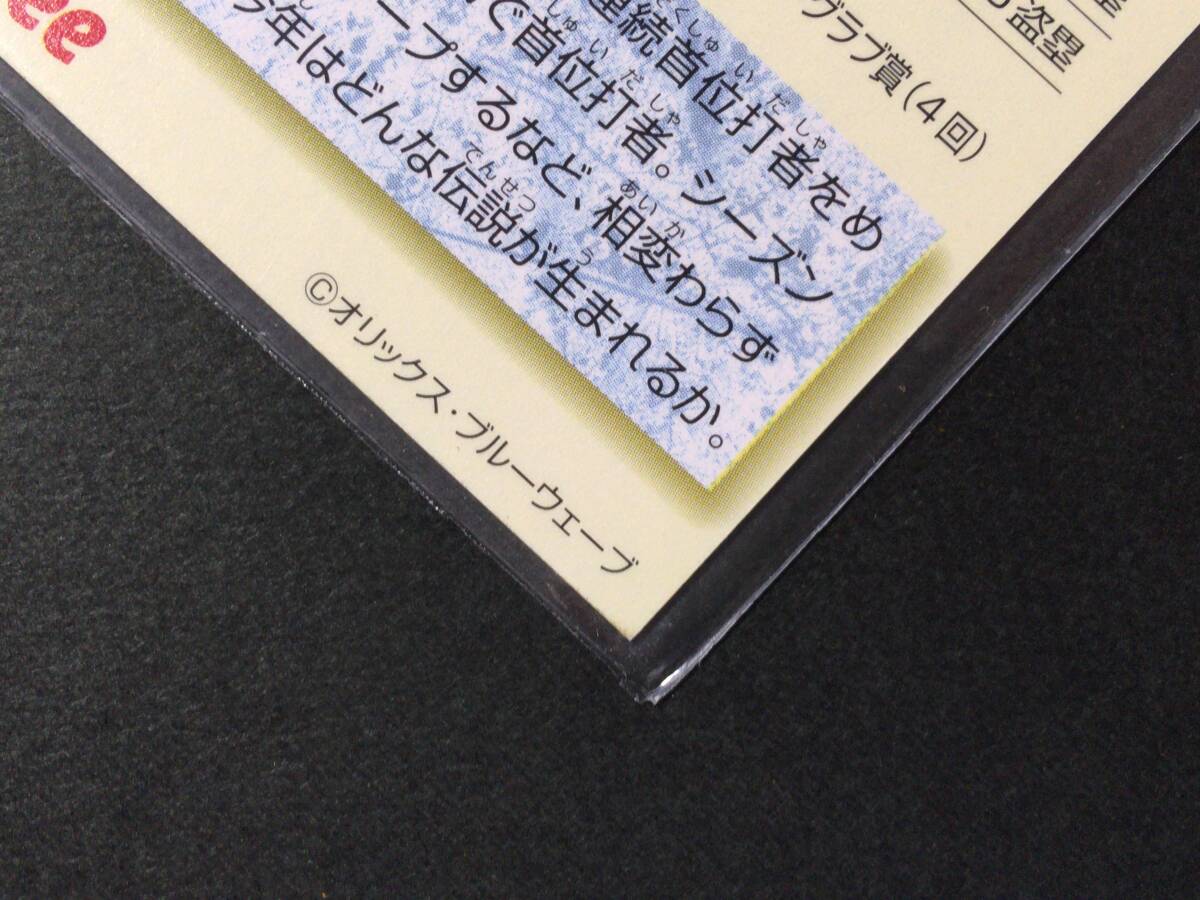 盗塁
グラブ賞(4回)
連続首位打者をめ
で首位打者。シーズン
ープするなど、相変わらず
今年はどんな伝説が生まれるか。
©オリックス・ブルーウェーブ
ee